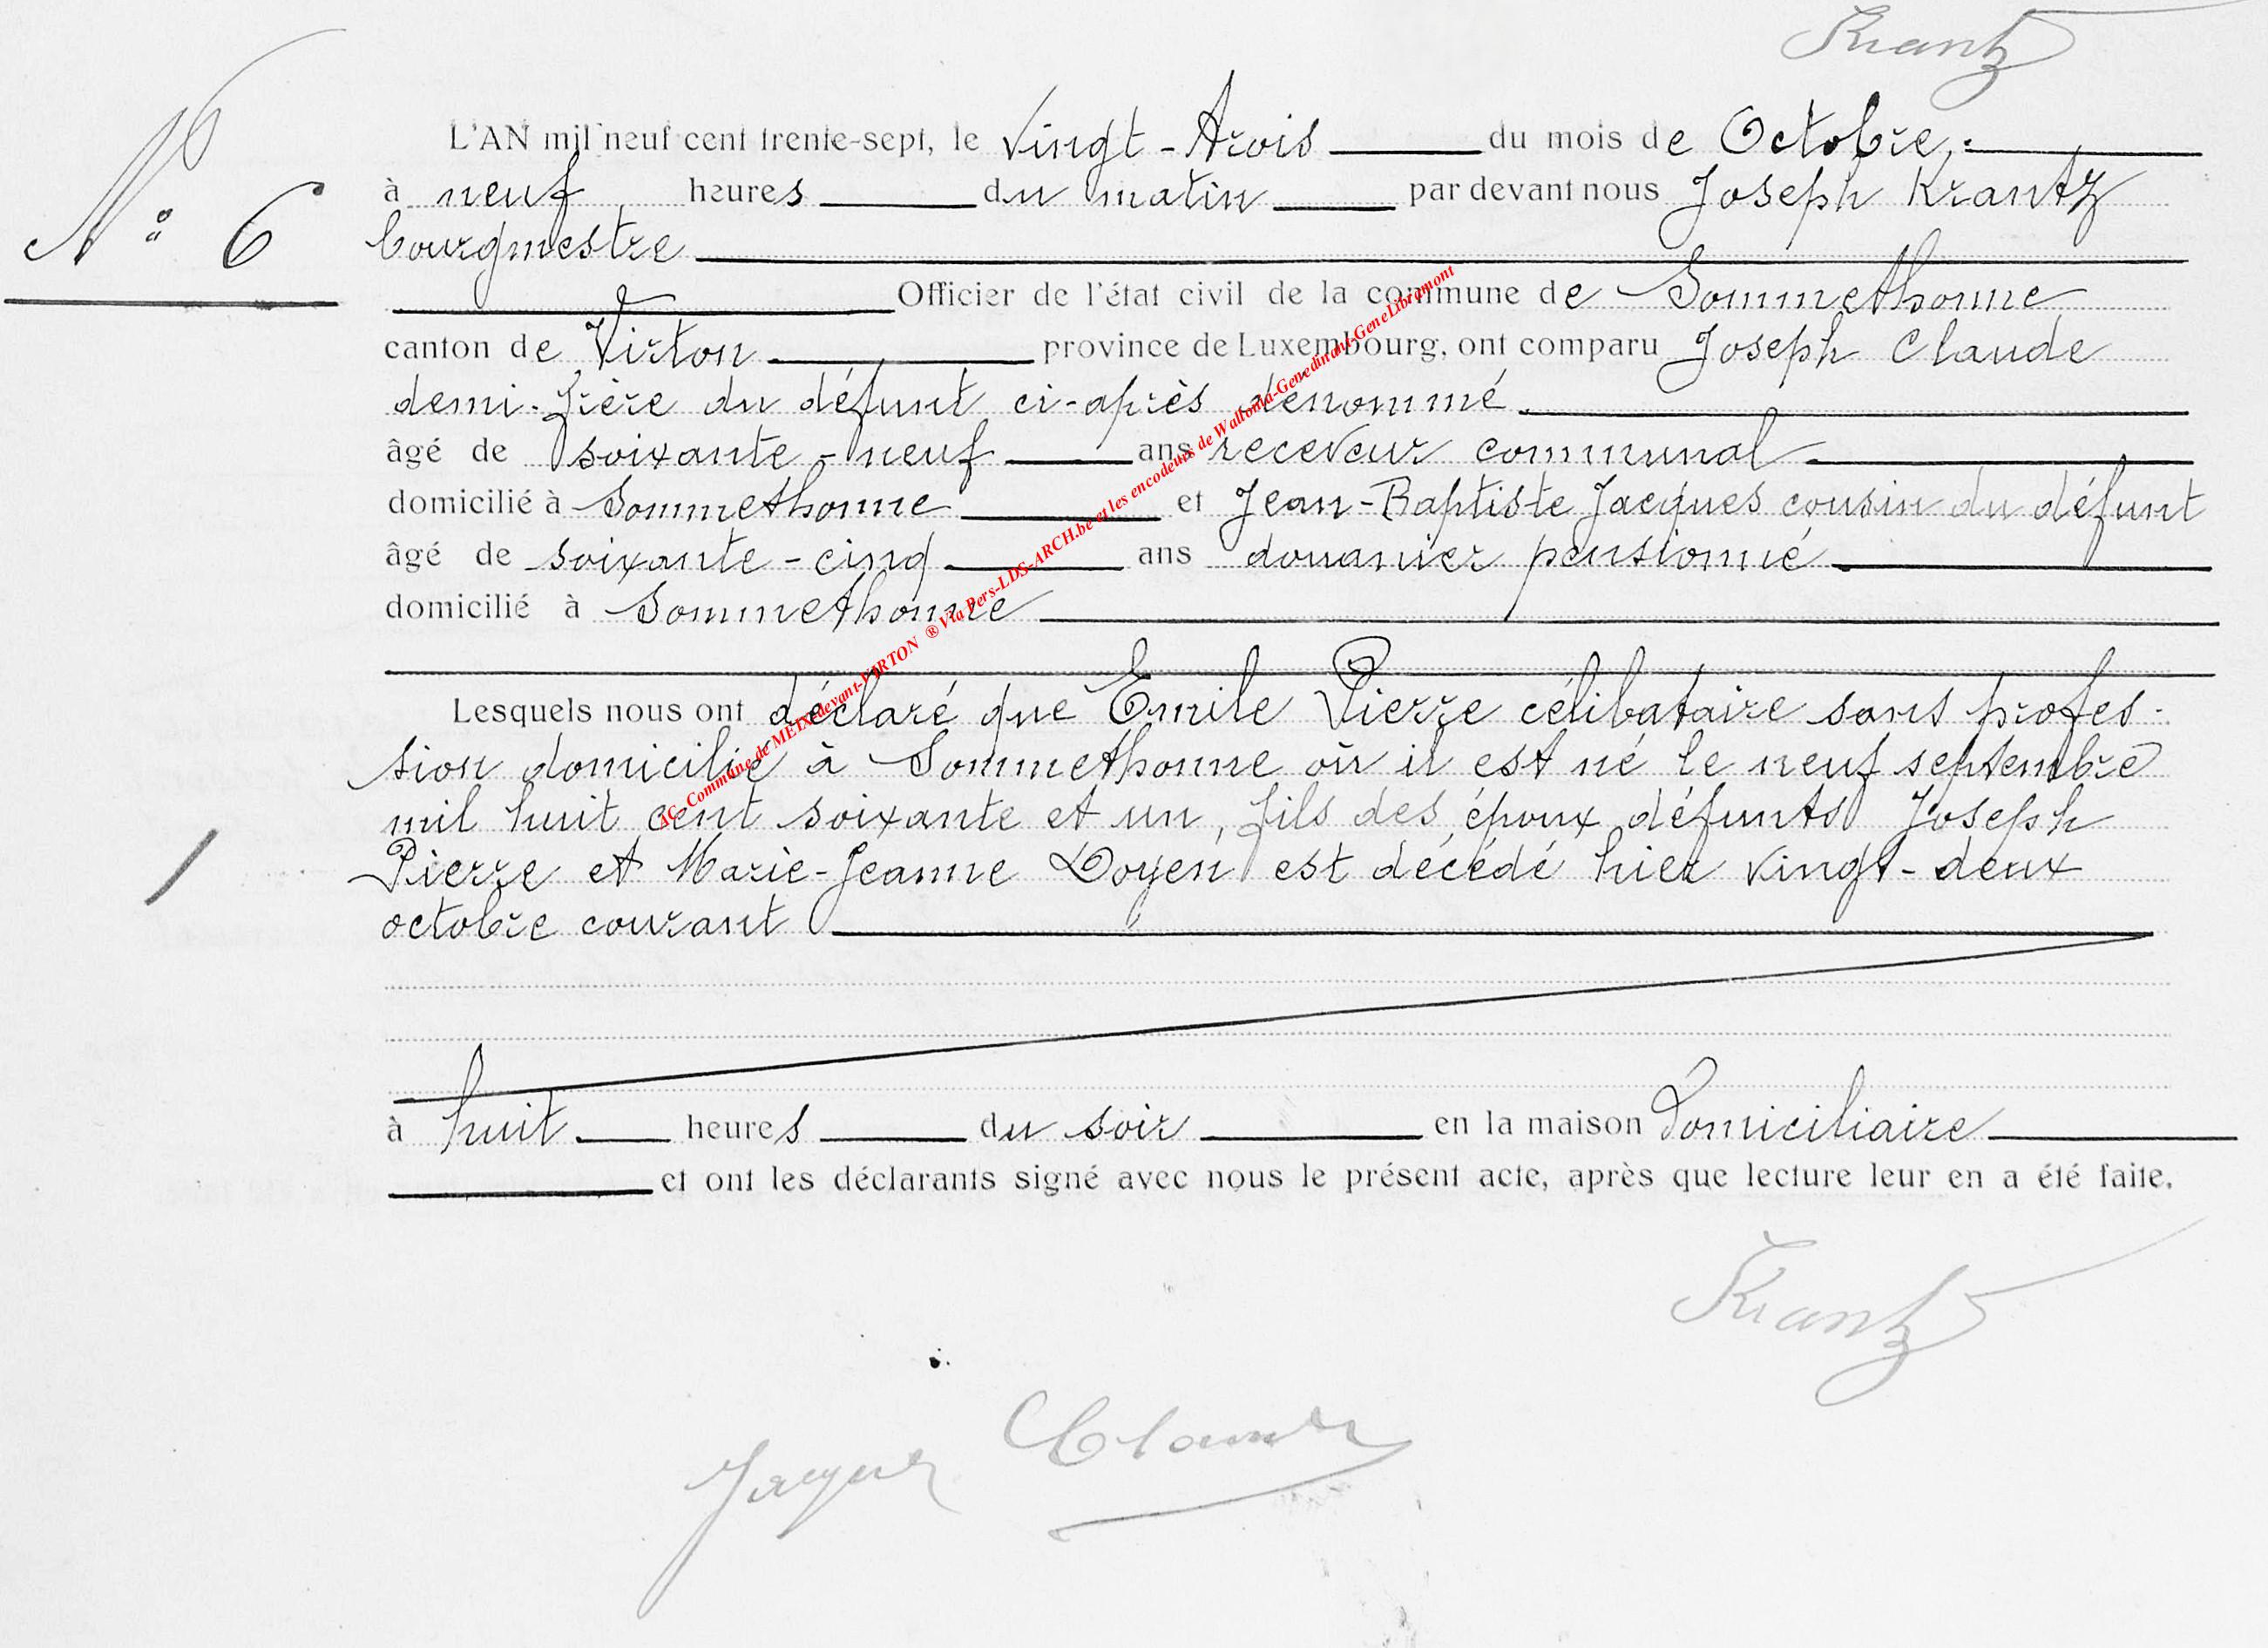 Krantz
L'AN mil neuf cent trente-sept, le vingt-trois du mois de Octobre
N° 6
à neuf heures du matin par devant nous Joseph Krantz
bourgmestre
Officier de l'état civil de la commune de Sommethonne
canton de Virton province de Luxembourg, ont comparu Joseph Claude
demi-frère du défunt ci-après dénommé
âgé de soixante-neuf ans receveur communal
domicilié à Sommethonne et Jean-Baptiste Jacques cousin du défunt
âgé de soixante-cinq ans douanier pensionné
domicilié à Sommethonne
Lesquels nous ont déclaré que Emile Pierre célibataire sans profes-
sion domicilié à Sommethonne où il est né le neuf septembre
mil huit cent soixante et un, fils des époux défunts Joseph
Pierre et Marie-Jeanne Doyen est décédé hier vingt-deux
octobre courant
à huit heures du soir en la maison domiciliaire
et ont les déclarants signé avec nous le présent acte, après que lecture leur en a été faite.
Krantz
Jacques Claude
AC - Commune de MEIX-devant-VIRTON ® Via Pers-LDS-ARCH.be et les encodeurs de Wallonia-Genedinant-GeneLibramont